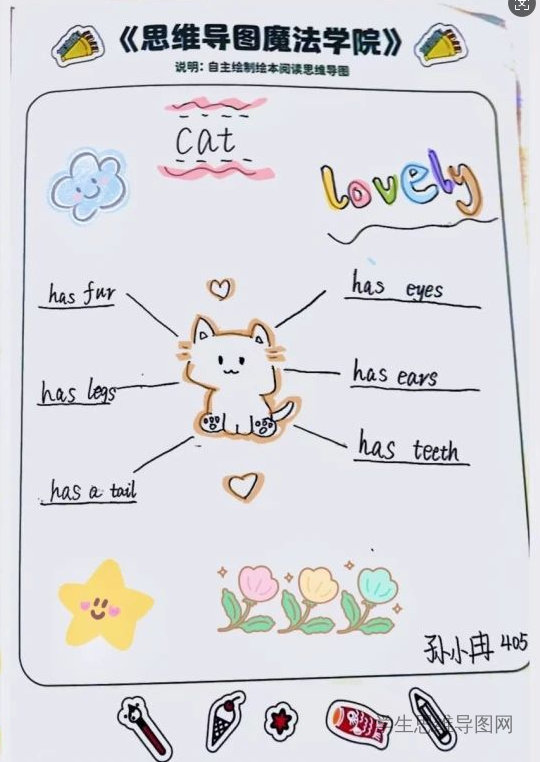 《思维导图魔法学院》
说明：自主绘制绘本阅读思维导图
cat
lovely
has fur
has eyes
has legs
has ears
has a tail
has teeth
孙小冉 405
学生思维导图网